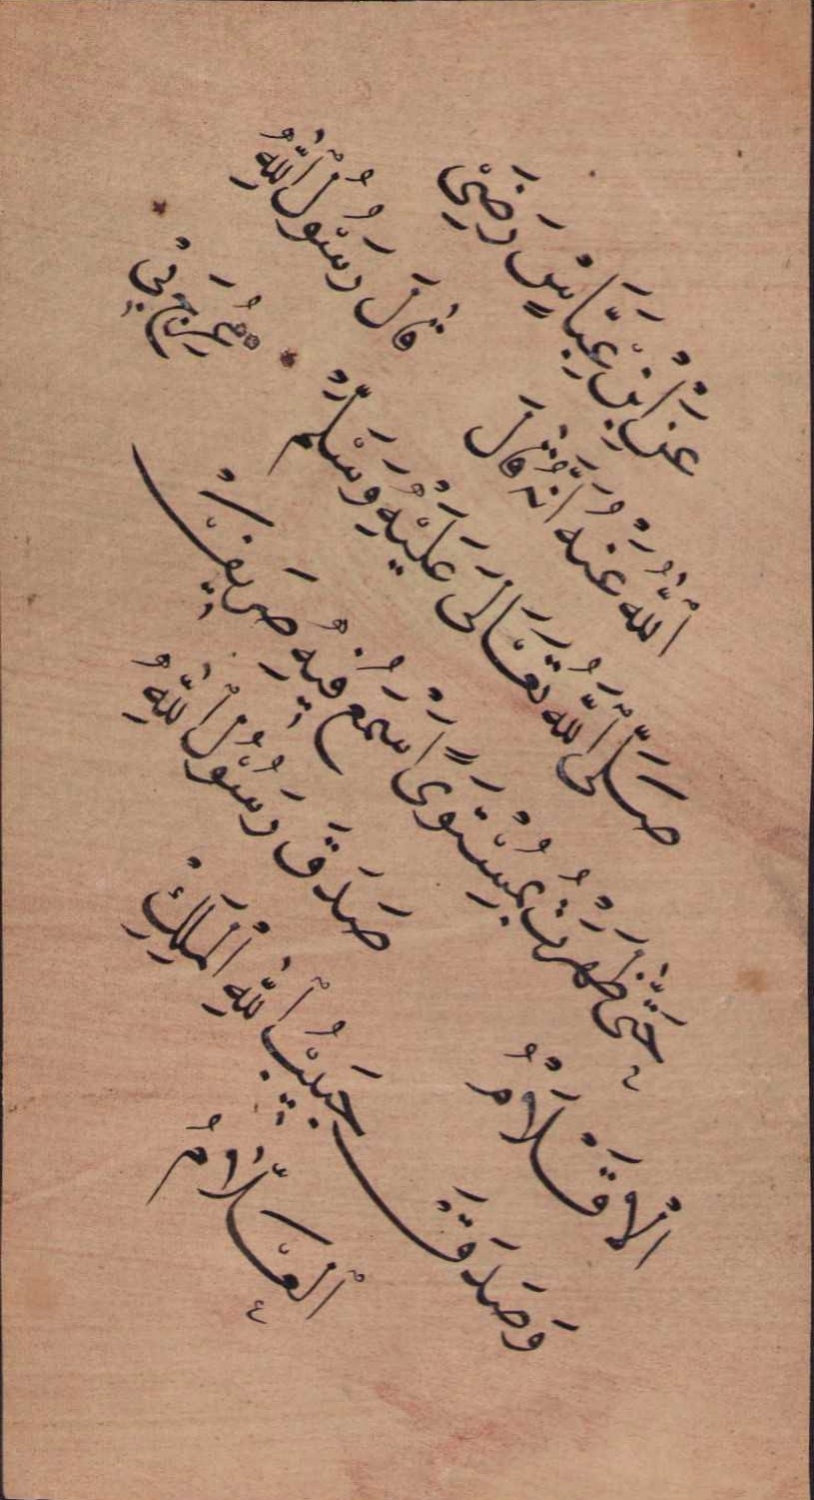 عَنْ اِبْنِ عَبَّاسٍ رَضِىَ
اَللّٰهُ عَنْهُ اَنَّهُ قَالَ
قَالَ رَسُولُ اللّٰهِ
صَلَّى اللّٰهُ تَعَالَى عَلَيْهِ وَسَلَّمْ
عُرِجَ بِىْ
حَتَّى ظَهَرْتُ بِمُسْتَوًى اَسْمَعُ فِيهِ صَرِيفَ
الْاَقْلَامُ
صَدَقَ رَسُولُ اللّٰهِ
وَصَدَقَ حَبِيبُ اللّٰهِ الْمَلِكِ
الْعَلَّامُ